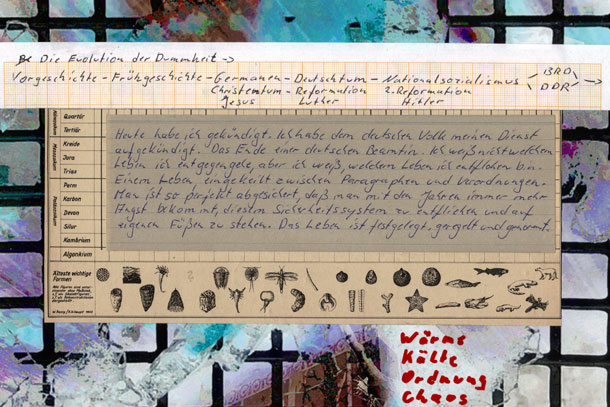 Die Evolution der Dummheit ->
Vorgeschichte - Frühgeschichte - Germanen - Deutschtum - Nationalsozialismus BRD
DDR ->
Christentum - Reformation 2. Reformation
Jesus Luther Hitler
Quartär
Tertiär
Kreide
Jura
Trias
Perm
Karbon
Devon
Silur
Kambrium
Algonkium
Heute habe ich gekündigt. Ich habe dem deutschen Volk meinen Dienst
aufgekündigt. Das Ende einer deutschen Beamtin. Ich weiß nicht welchem
Leben ich entgegengehe, aber ich weiß, welchem Leben ich entflohen bin.
Einem Leben, eingekeilt zwischen Paragraphen und Verordnungen.
Man ist so perfekt abgesichert, daß man mit den Jahren immer mehr
Angst bekommt, diesem Sicherheitssystem zu entfliehen und auf
eigenen Füßen zu stehen. Das Leben ist festgelegt, geregelt und genormt.
Älteste wichtige
Formen
Wärme
Kälte
Ordnung
Chaos